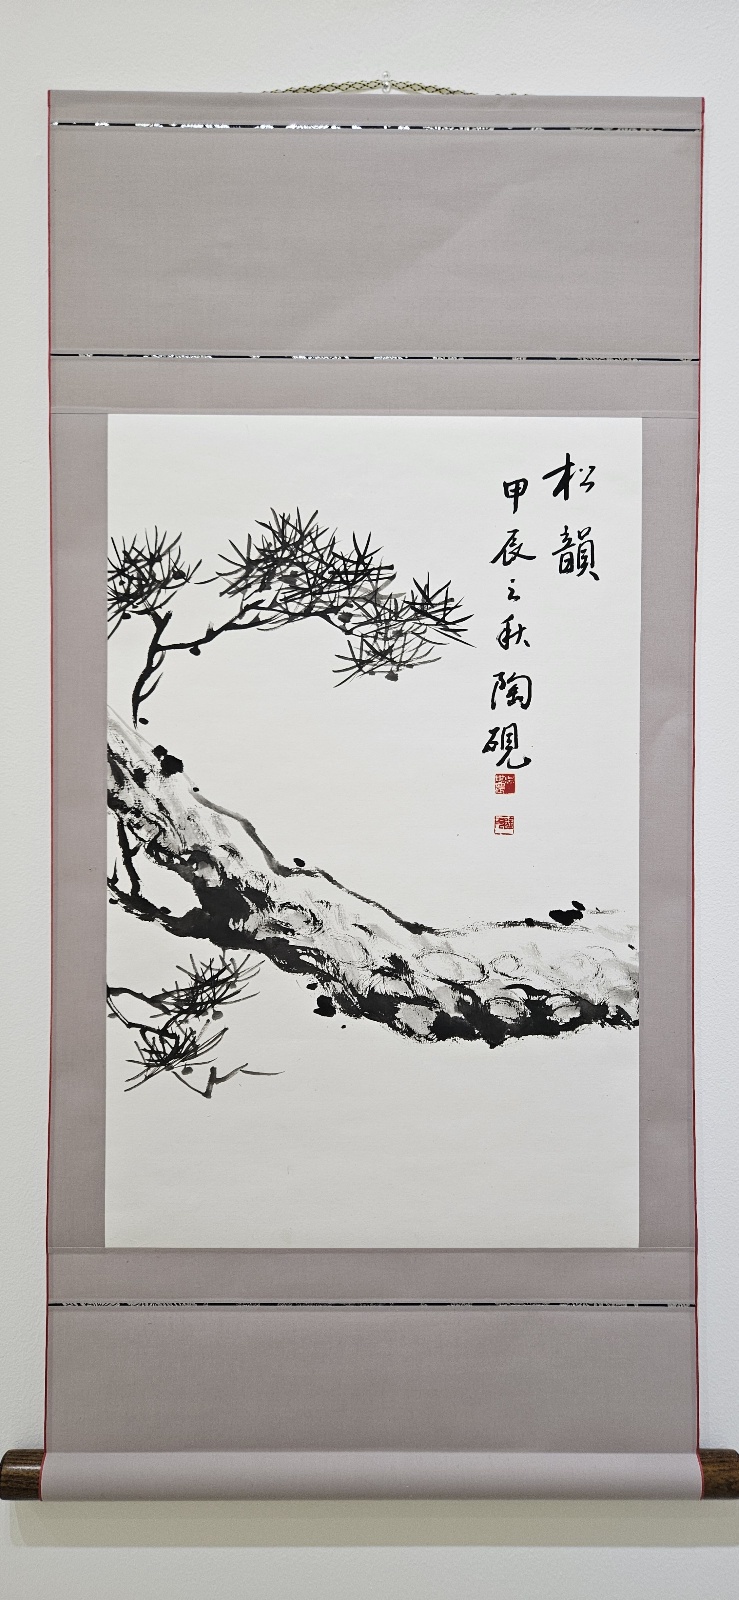 松韻
甲辰之秋陶硯